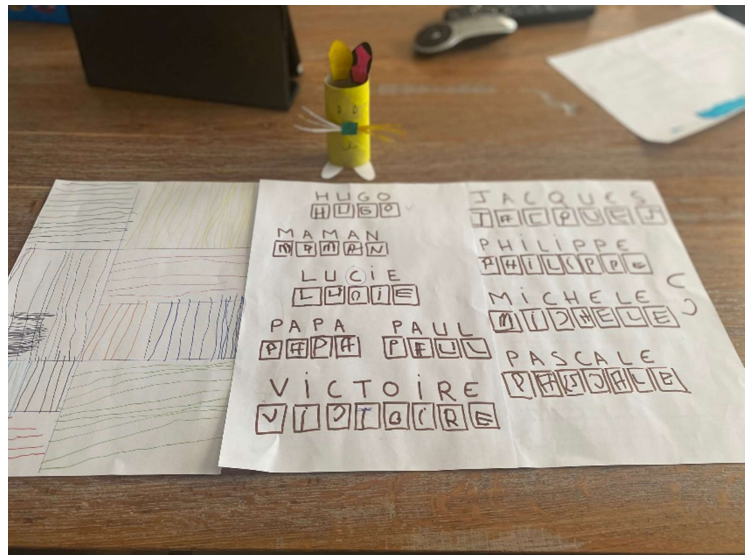 HUGO
HUGO
MAMAN
MAMAN
LUCiE
LUCIE
PAPA PAUL
PAPA PAUL
ViCTOiRE
VICTOIRE
JACQUES
JACQUES
PHiLiPPE
PHILIPPE
MiCHELE
MICHELE
PASCALE
PASCALE